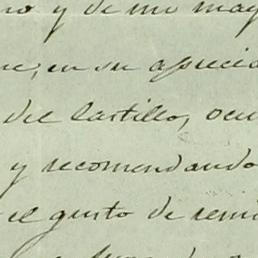 no y de mi may
en su aprecia
del Castillo, ocu
y recomendando
el gusto de remi